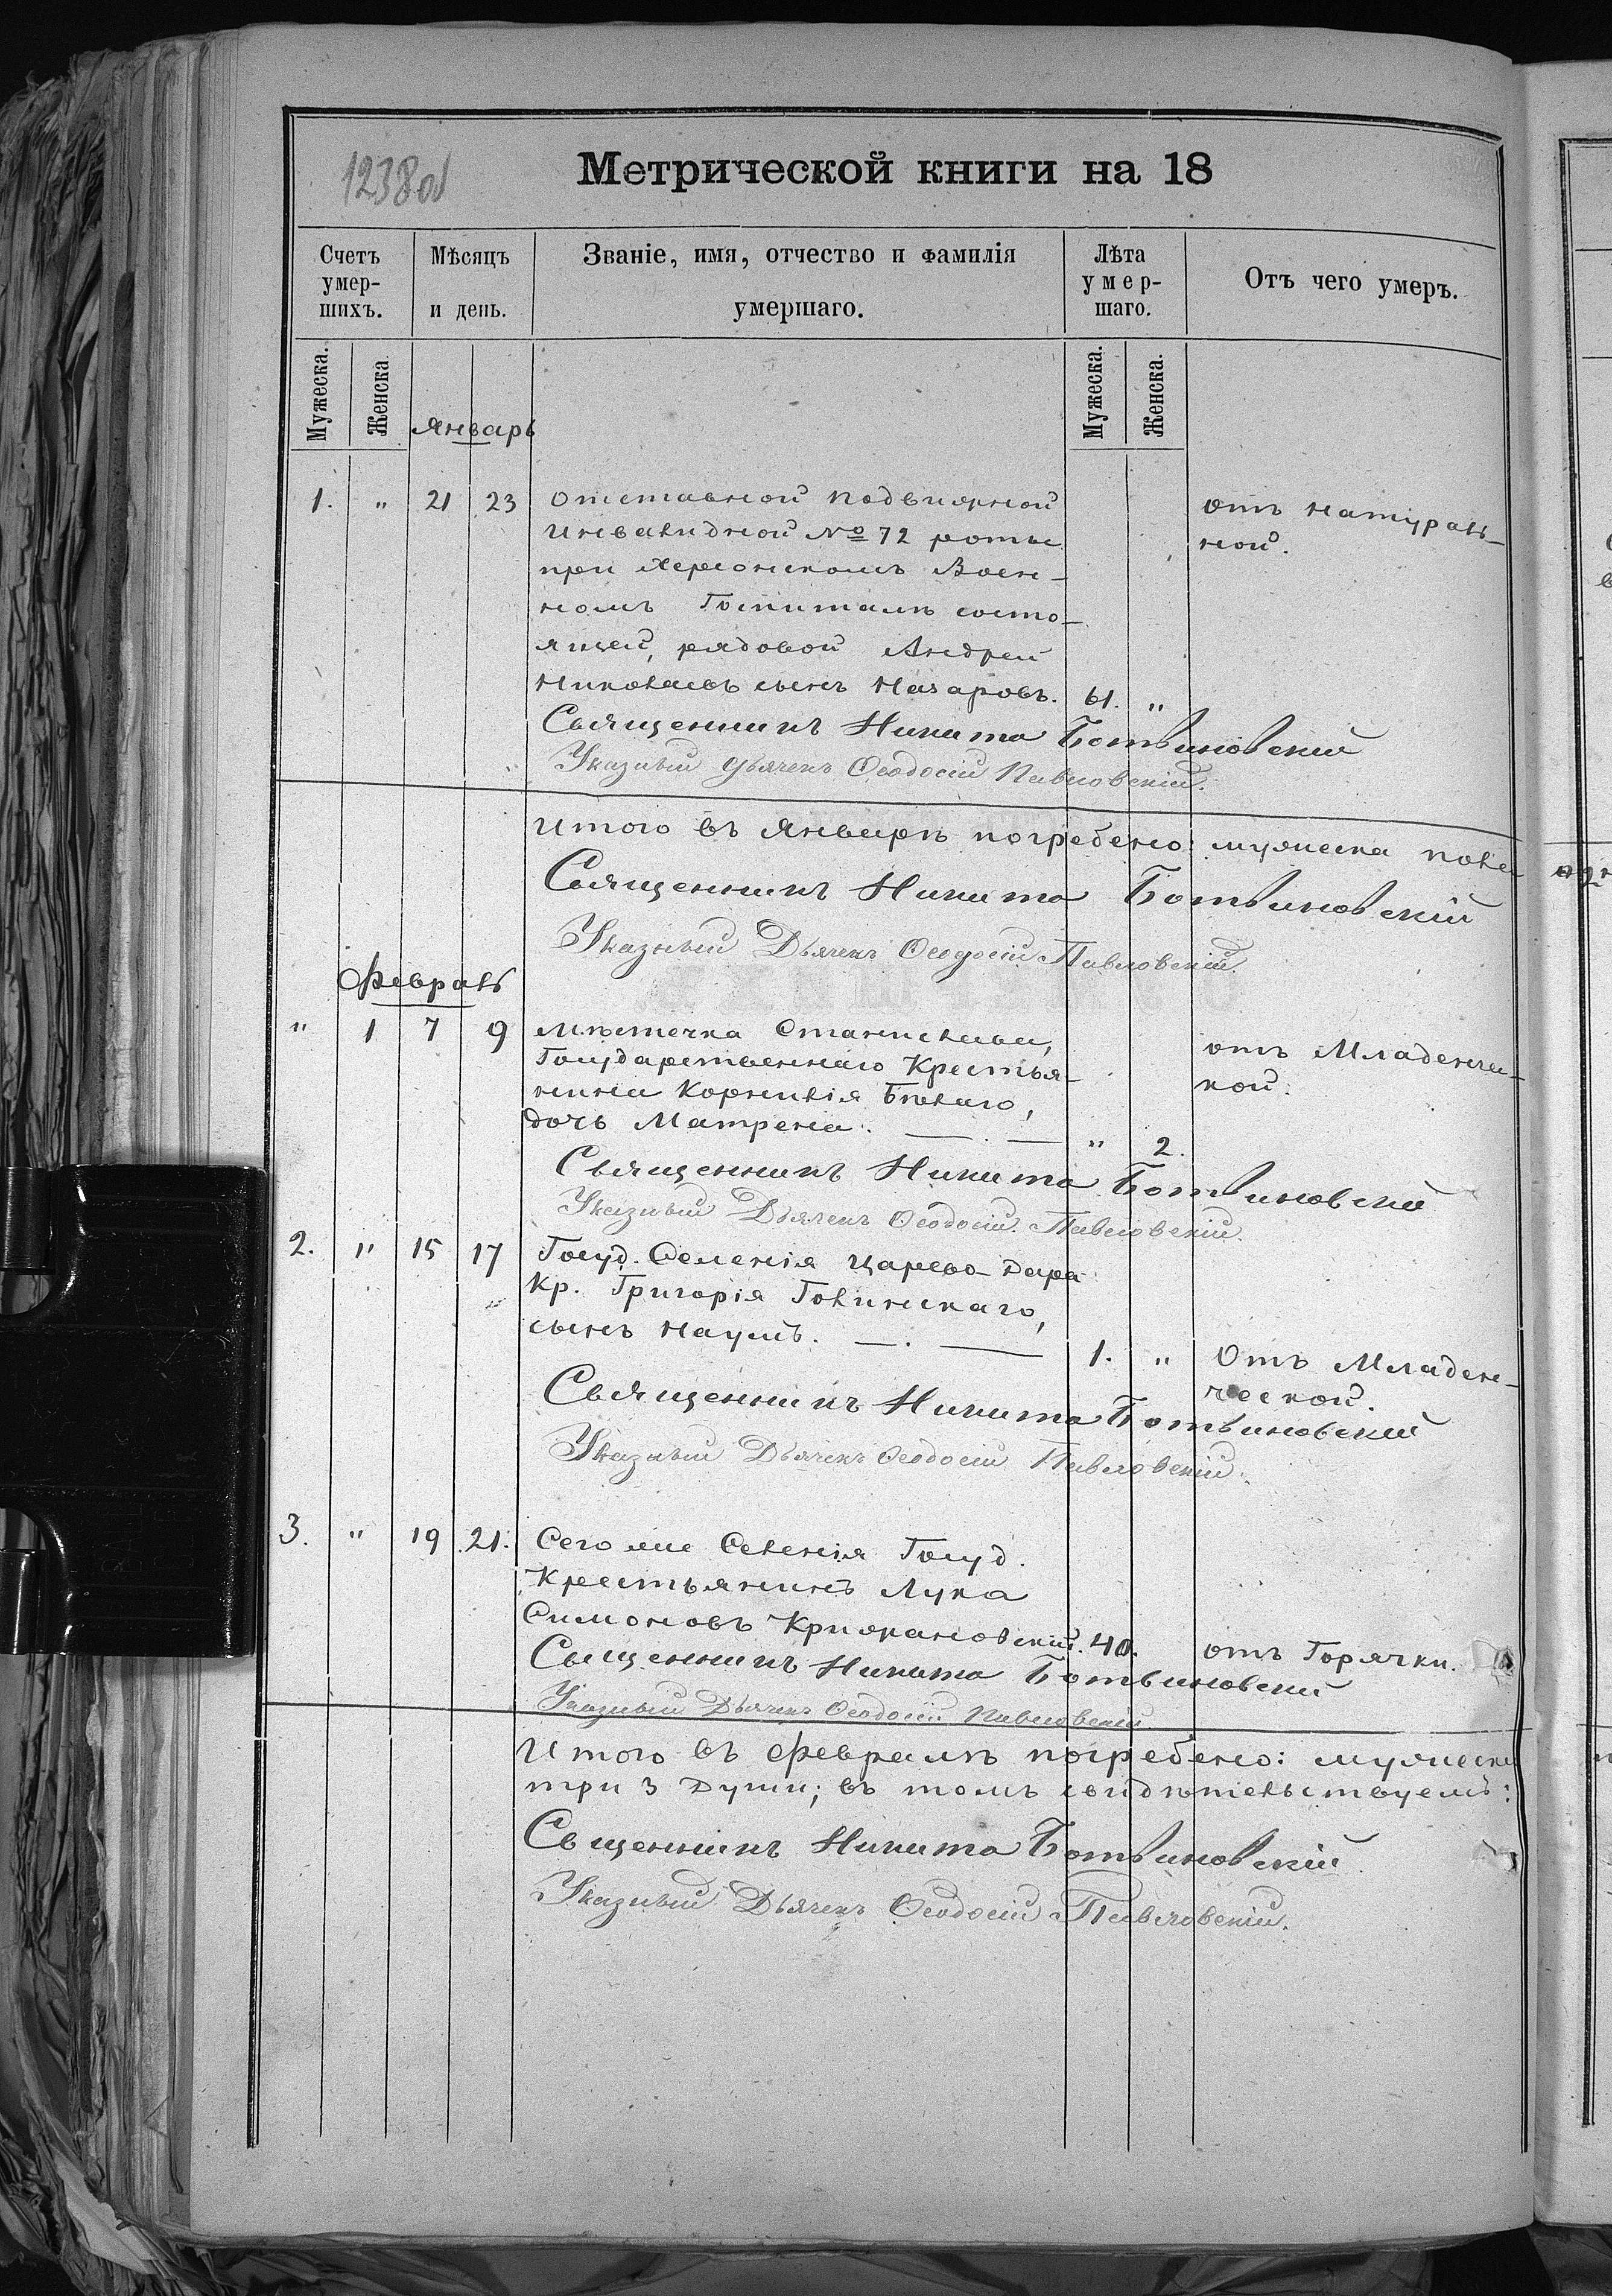 1238об
Метрической книги на 18
Счетъ умер- шихъ.
Мѣсяцъ и день.
Званіе, имя, отчество и фамилія умершаго.
Лѣта умер- шаго.
Отъ чего умеръ.
Мужеска. Женска Мужеска. Женска.
Январь
1. " 21 23 Отставной подвижной отъ натураль-
Инвалидной № 72 роты ной.
при Херсонскомъ Воен-
номъ Госпиталѣ состо-
ящей, рядовой Андрей
Николаевъ сынъ Назаровъ. 61. "
Священникъ Никита Ботвиновскій
Указный Дьячекъ Ѳеодосій Павловскій.
Итого въ Январѣ погребено: мужеска пола
Священникъ Никита Ботвиновскій
Указный Дьячекъ Ѳеодосій Павловскій.
Февраль
" 1 7 9 Мѣстечка Станислава,
Государственнаго Крестья- отъ Младенчи-
нина Корнилія Бѣлаго, кой.
дочь Матрена. " 2.
Священникъ Никита Ботвиновскій
Указный Дьячекъ Ѳеодосій Павловскій.
2. " 15 17 Госуд. Селенія Царево-Дара
Кр. Григорія Голинскаго,
сынъ Наумъ. 1. " Отъ Младен-
ческой.
Священникъ Никита Ботвиновскій
Указный Дьячекъ Ѳеодосій Павловскій.
3. " 19 21. Сего же Селенія Госуд.
Крестьянинъ Лука
Симоновъ Крижановскій. 40. отъ Горячки.
Сященникъ Никита Ботвиновскій
Указный Дьячекъ Ѳеодосій Павловскій
Итого въ Февралѣ погребено: мужеска
три 3 души; въ томъ свидѣтельствуемъ:
Сященникъ Никита Ботвиновскій
Указный Дьячекъ Ѳеодосій Павловскій.